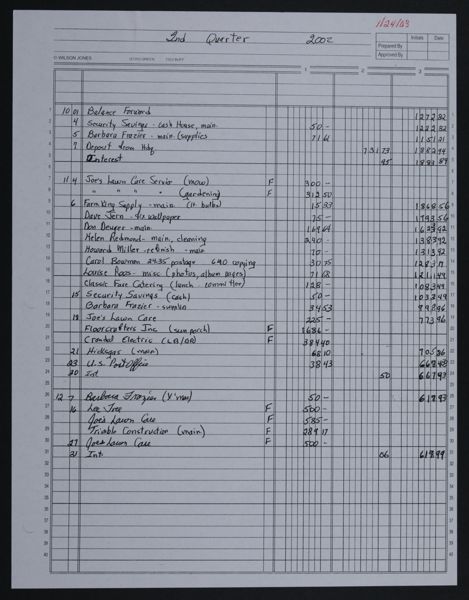 1/24/03
2nd Quarter 2002
Initials Date
Prepared By
Approved By
© WILSON JONES
1 2 3
10 01 Balance Forward 1272 82
4 Security Savings - cash House, main 50 - 1222 82
5 Barbara Frazier - main (supplies 71 61 1151 21
7 Deposit from Hdq. 731 73 1882 94
Interest 95 1883 89
11 4 Joe's Lawn Care Service (mow) F 300 -
" " " " (gardening) F 312 50
6 Farm King Supply - main (lt bulbs) 15 33 1868 56
Dave Jern - wallpaper 75 - 1793 56
Don Deuyer - main 169 64 1623 92
Helen Redmond - main, cleaning 240 - 1383 92
Howard Miller - refinish - main 70 - 1313 92
Carol Bowman 24.35 postage 6.40 copying 30 75 1283 17
Louise Roos - misc (photos, album pages) 71 68 1211 49
Classic Fare Catering (lunch - committee) 128 - 1083 49
15 Security Savings (cash) 50 - 1033 49
Barbara Frazier - supplies 34 53 998 96
18 Joe's Lawn Care 225 - 773 96
Floorcrafters Inc (sun porch) F 1686 -
Crandal Electric (LB/OR) F 384 40
21 Hicksgas (main) 68 10 705 86
23 U.S. Post Office 38 43
30 Int 50 667 93
12 7 Barbara Frazier (X'mas) 50 - 617 93
16 Lee Tree F 500 -
Joe's Lawn Care F 585 -
Trimble Construction (main) F 289 17
27 Joe's Lawn Care F 500 -
31 Int 06 617 99